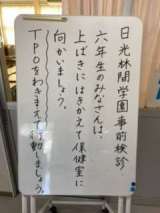 日光林間学園事前検診
六年生のみなさんは、
上ばきにはきかえて保健室に
向かいましょう。
TPOをわきまえて行動しましょう。